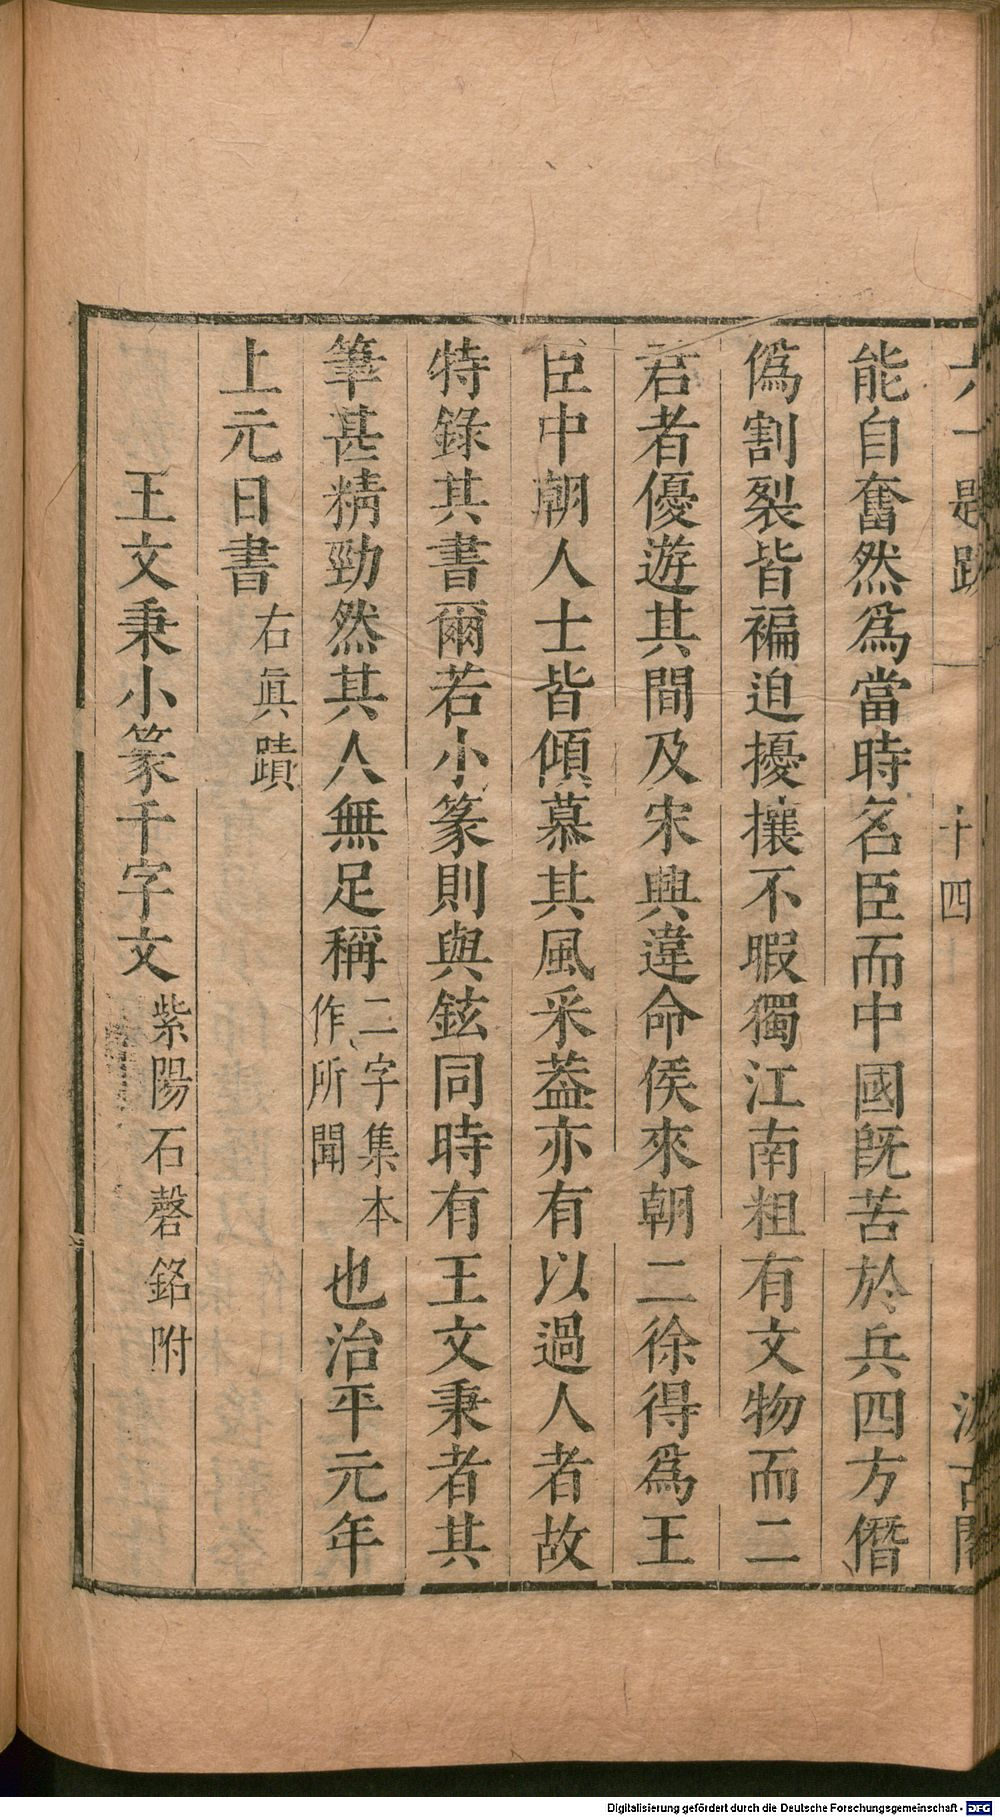 六一題跋 十四 汲古閣
能自奮然爲當時名臣而中國旣苦於兵四方僭
僞割裂皆褊迫擾攘不暇獨江南粗有文物而二
君者優遊其間及宋興違命侯來朝二徐得爲王
臣中朝人士皆傾慕其風采蓋亦有以過人者故
特錄其書爾若小篆則與鉉同時有王文秉者其
筆甚精勁然其人無足稱二字集本作所聞也治平元年
上元日書右眞蹟
王文秉小篆千字文紫陽石磬銘附
Digitalisierung gefördert durch die Deutsche Forschungsgemeinschaft - DFG